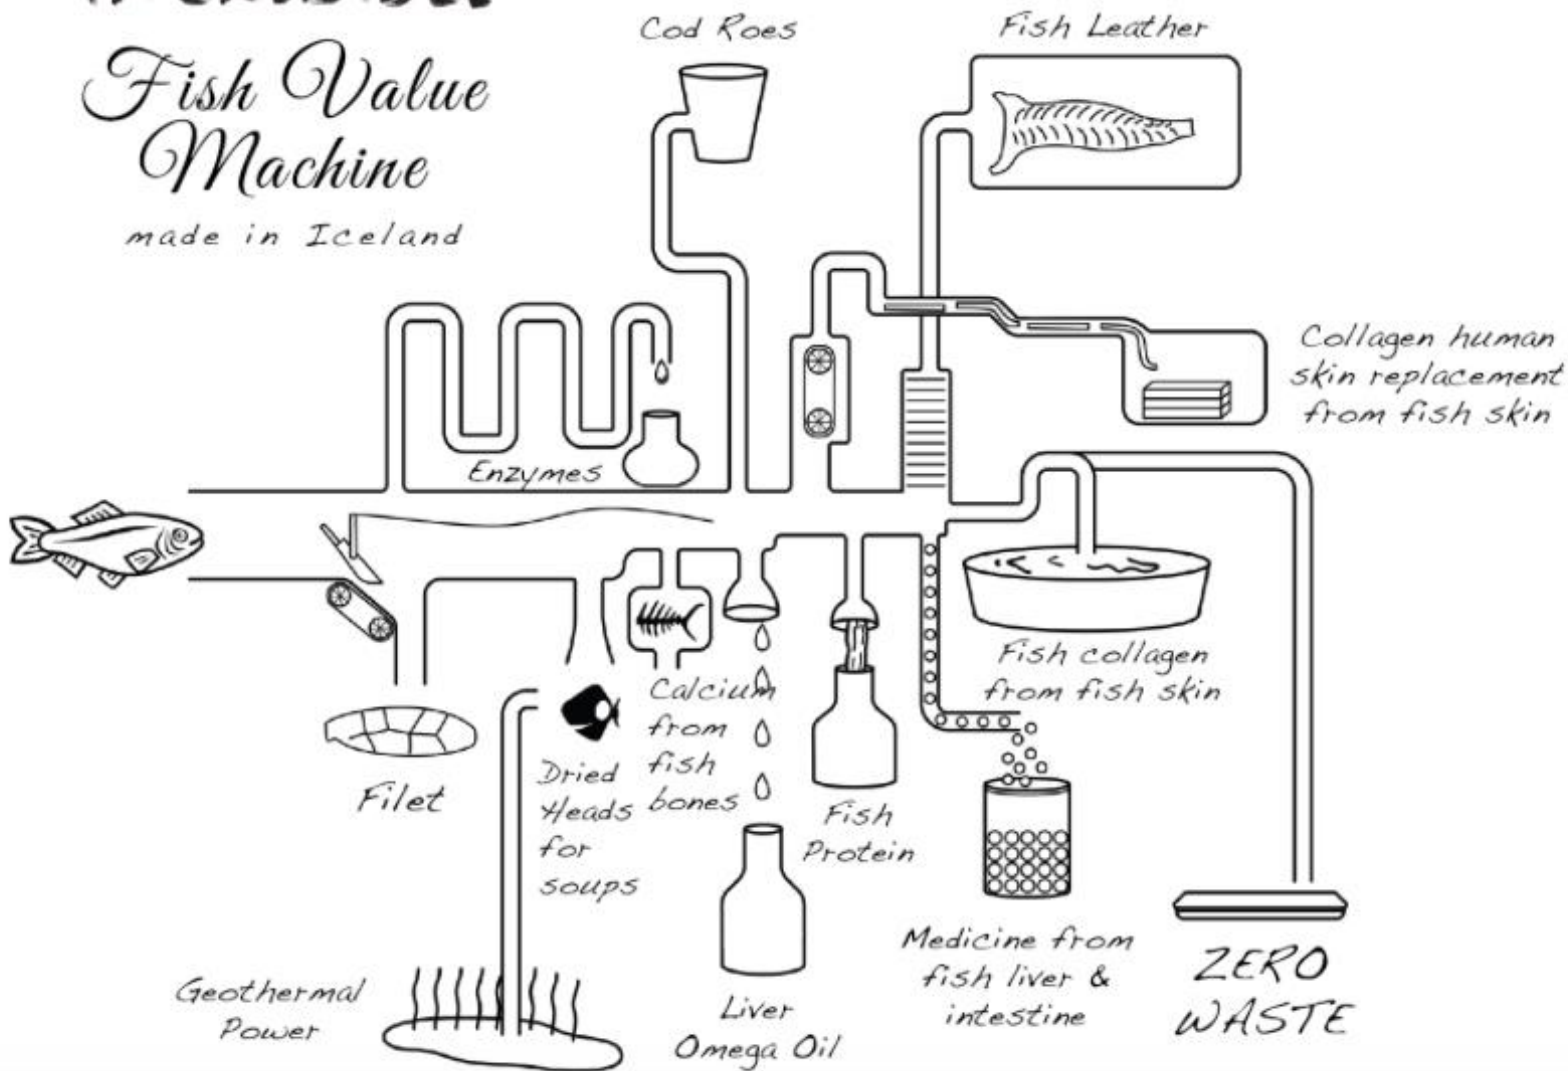 Fish Value
Machine
made in Iceland
Cod Roes
Fish Leather
Enzymes
Collagen human
skin replacement
from fish skin
Fish collagen
from fish skin
Filet
Dried
Heads
for
soups
Calcium
from
fish
bones
Fish
Protein
Liver
Omega Oil
Medicine from
fish liver &
intestine
ZERO
WASTE
Geothermal
Power